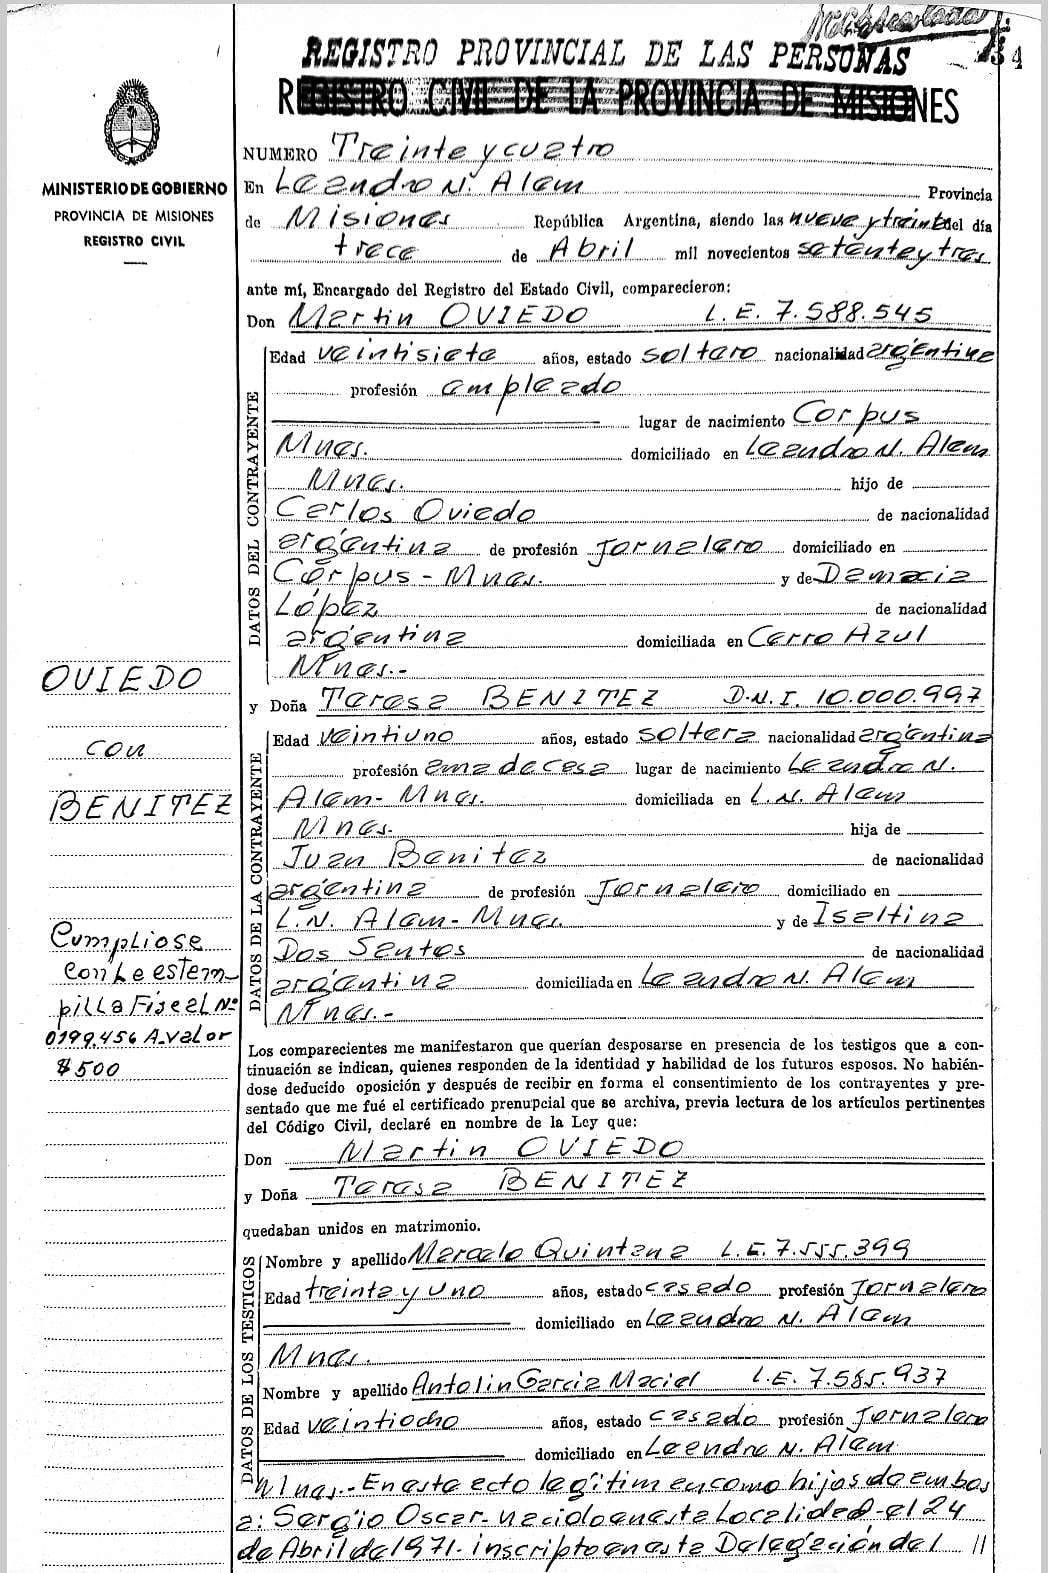 34
REGISTRO PROVINCIAL DE LAS PERSONAS
REGISTRO CIVIL DE LA PROVINCIA DE MISIONES
MINISTERIO DE GOBIERNO
PROVINCIA DE MISIONES
REGISTRO CIVIL
NUMERO Treinta y cuatro
En Leandro N. Alem Provincia
de Misiones República Argentina, siendo las nueve y treinta del día
trece de Abril mil novecientos setenta y tres
ante mí, Encargado del Registro del Estado Civil, comparecieron:
Don Martin OVIEDO L.E. 7.588.545
DATOS DEL CONTRAYENTE
Edad veintisiete años, estado soltero nacionalidad argentina
profesión empleado
lugar de nacimiento Corpus
Mnes. domiciliado en Leandro N. Alem
Mnes. hijo de
Carlos Oviedo de nacionalidad
argentina de profesión Jornalero domiciliado en
Córpus - Mnes. y de Damacia
López de nacionalidad
argentina domiciliada en Cerro Azul
Mnes.-
OVIEDO
con
BENITEZ
y Doña Teresa BENITEZ D.N.I. 10.000.997
DATOS DE LA CONTRAYENTE
Edad veintiuno años, estado soltera nacionalidad argentina
profesión ama de casa lugar de nacimiento Leandro N.
Alem - Mnes. domiciliada en L.N. Alem
Mnes. hija de
Juan Benitez de nacionalidad
argentina de profesión Jornalero domiciliado en
L.N. Alem - Mnes. y de Iseltina
Dos Santos de nacionalidad
argentina domiciliada en Leandro N. Alem
Mnes.-
Cumpliose
con la estam-
pilla Fiscal Nº
0199.456 A-valor
$500
Los comparecientes me manifestaron que querían desposarse en presencia de los testigos que a con-
tinuación se indican, quienes responden de la identidad y habilidad de los futuros esposos. No habién-
dose deducido oposición y después de recibir en forma el consentimiento de los contrayentes y pre-
sentado que me fué el certificado prenupcial que se archiva, previa lectura de los artículos pertinentes
del Código Civil, declaré en nombre de la Ley que:
Don Martin OVIEDO
y Doña Teresa BENITEZ
quedaban unidos en matrimonio.
DATOS DE LOS TESTIGOS
Nombre y apellido Marcelo Quintana L.E. 7.555.399
Edad treinta y uno años, estado casado profesión Jornalero
domiciliado en Leandro N. Alem
Mnes.
Nombre y apellido Antolin Garcia Maciel L.E. 7.585.937
Edad veintiocho años, estado casado profesión Jornalero
domiciliado en Leandro N. Alem
Mnes.- En este acto legitiman como hijos de ambos
a: Sergio Oscar - nacido en esta Localidad - el 24
de Abril de 1971 - inscripto en esta Delegación del //